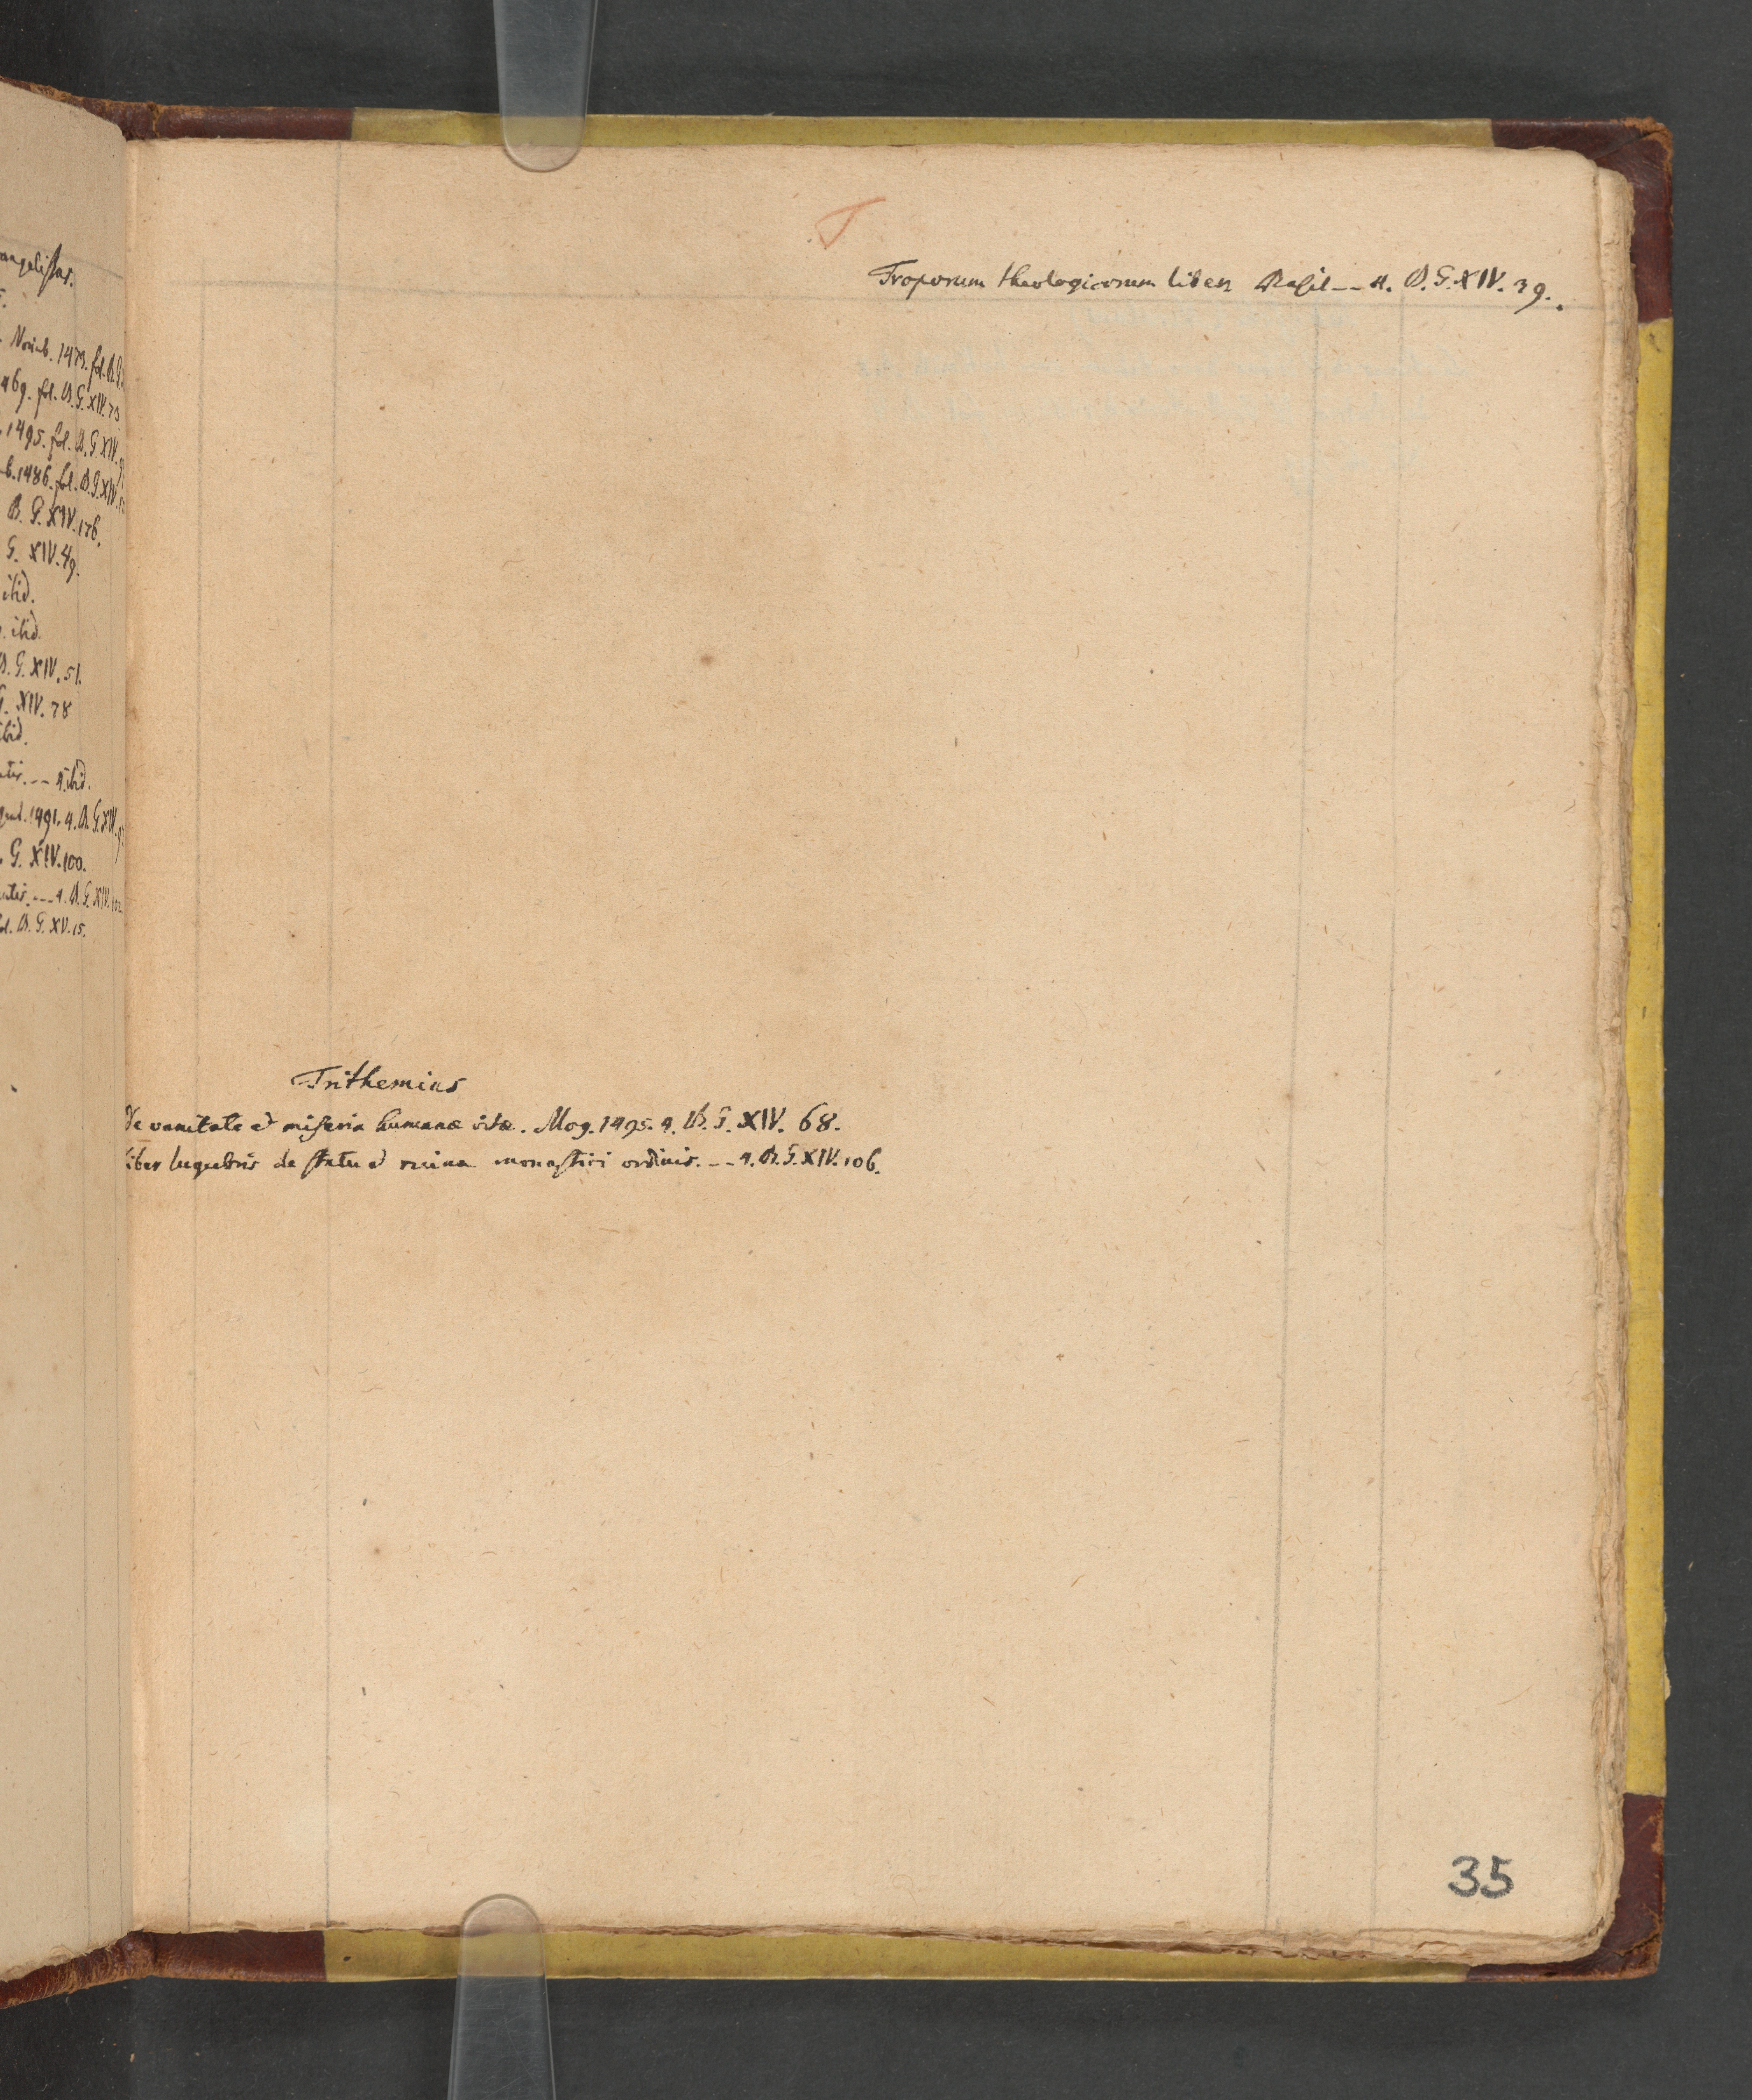 angelistas.
Novemb. 1479. fol. B.G.
469. fol. B.G. XIV. 73
1495. fol. B.G. XIV.
b. 1486. fol. B.G. XIV.
B. G. XIV. 176.
G. XIV. 49.
ibid.
ibid.
B. G. XIV. 51.
G. XIV. 78
ibid.
-- 4. ibid.
1491. 4. B. G. XIV.
G. XIV. 100.
--- 4. B. G. XIV. 102
fol. B. G. XV. 15.
T
Troporum theologicorum liber Basil -- 4. B. G. XIV. 39.
Trithemius
de vanitate et miseria humanæ vitæ. Mog. 1495. 4. B. G. XIV. 68.
liber lugubris de statu et ruina monastici ordinis. -- 4. B. G. XIV. 106.
35